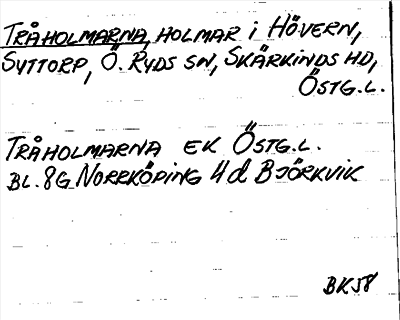 TRÅHOLMARNA, HOLMAR i HÖVERN,
SYTTORP, Ö. RYDS SN, SKÄRKINDS HD,
ÖSTG.L.
TRÅHOLMARNA EK ÖSTG.L.
BL. 8G NORRKÖPING 4d BJÖRKVIK
BK58